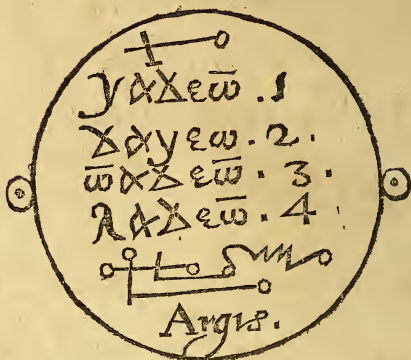 yαΔεω̅ . 1
Δαyεω . 2 .
ω̅αΔεω̅ . 3 .
λαΔεω̅ . 4
Argis.